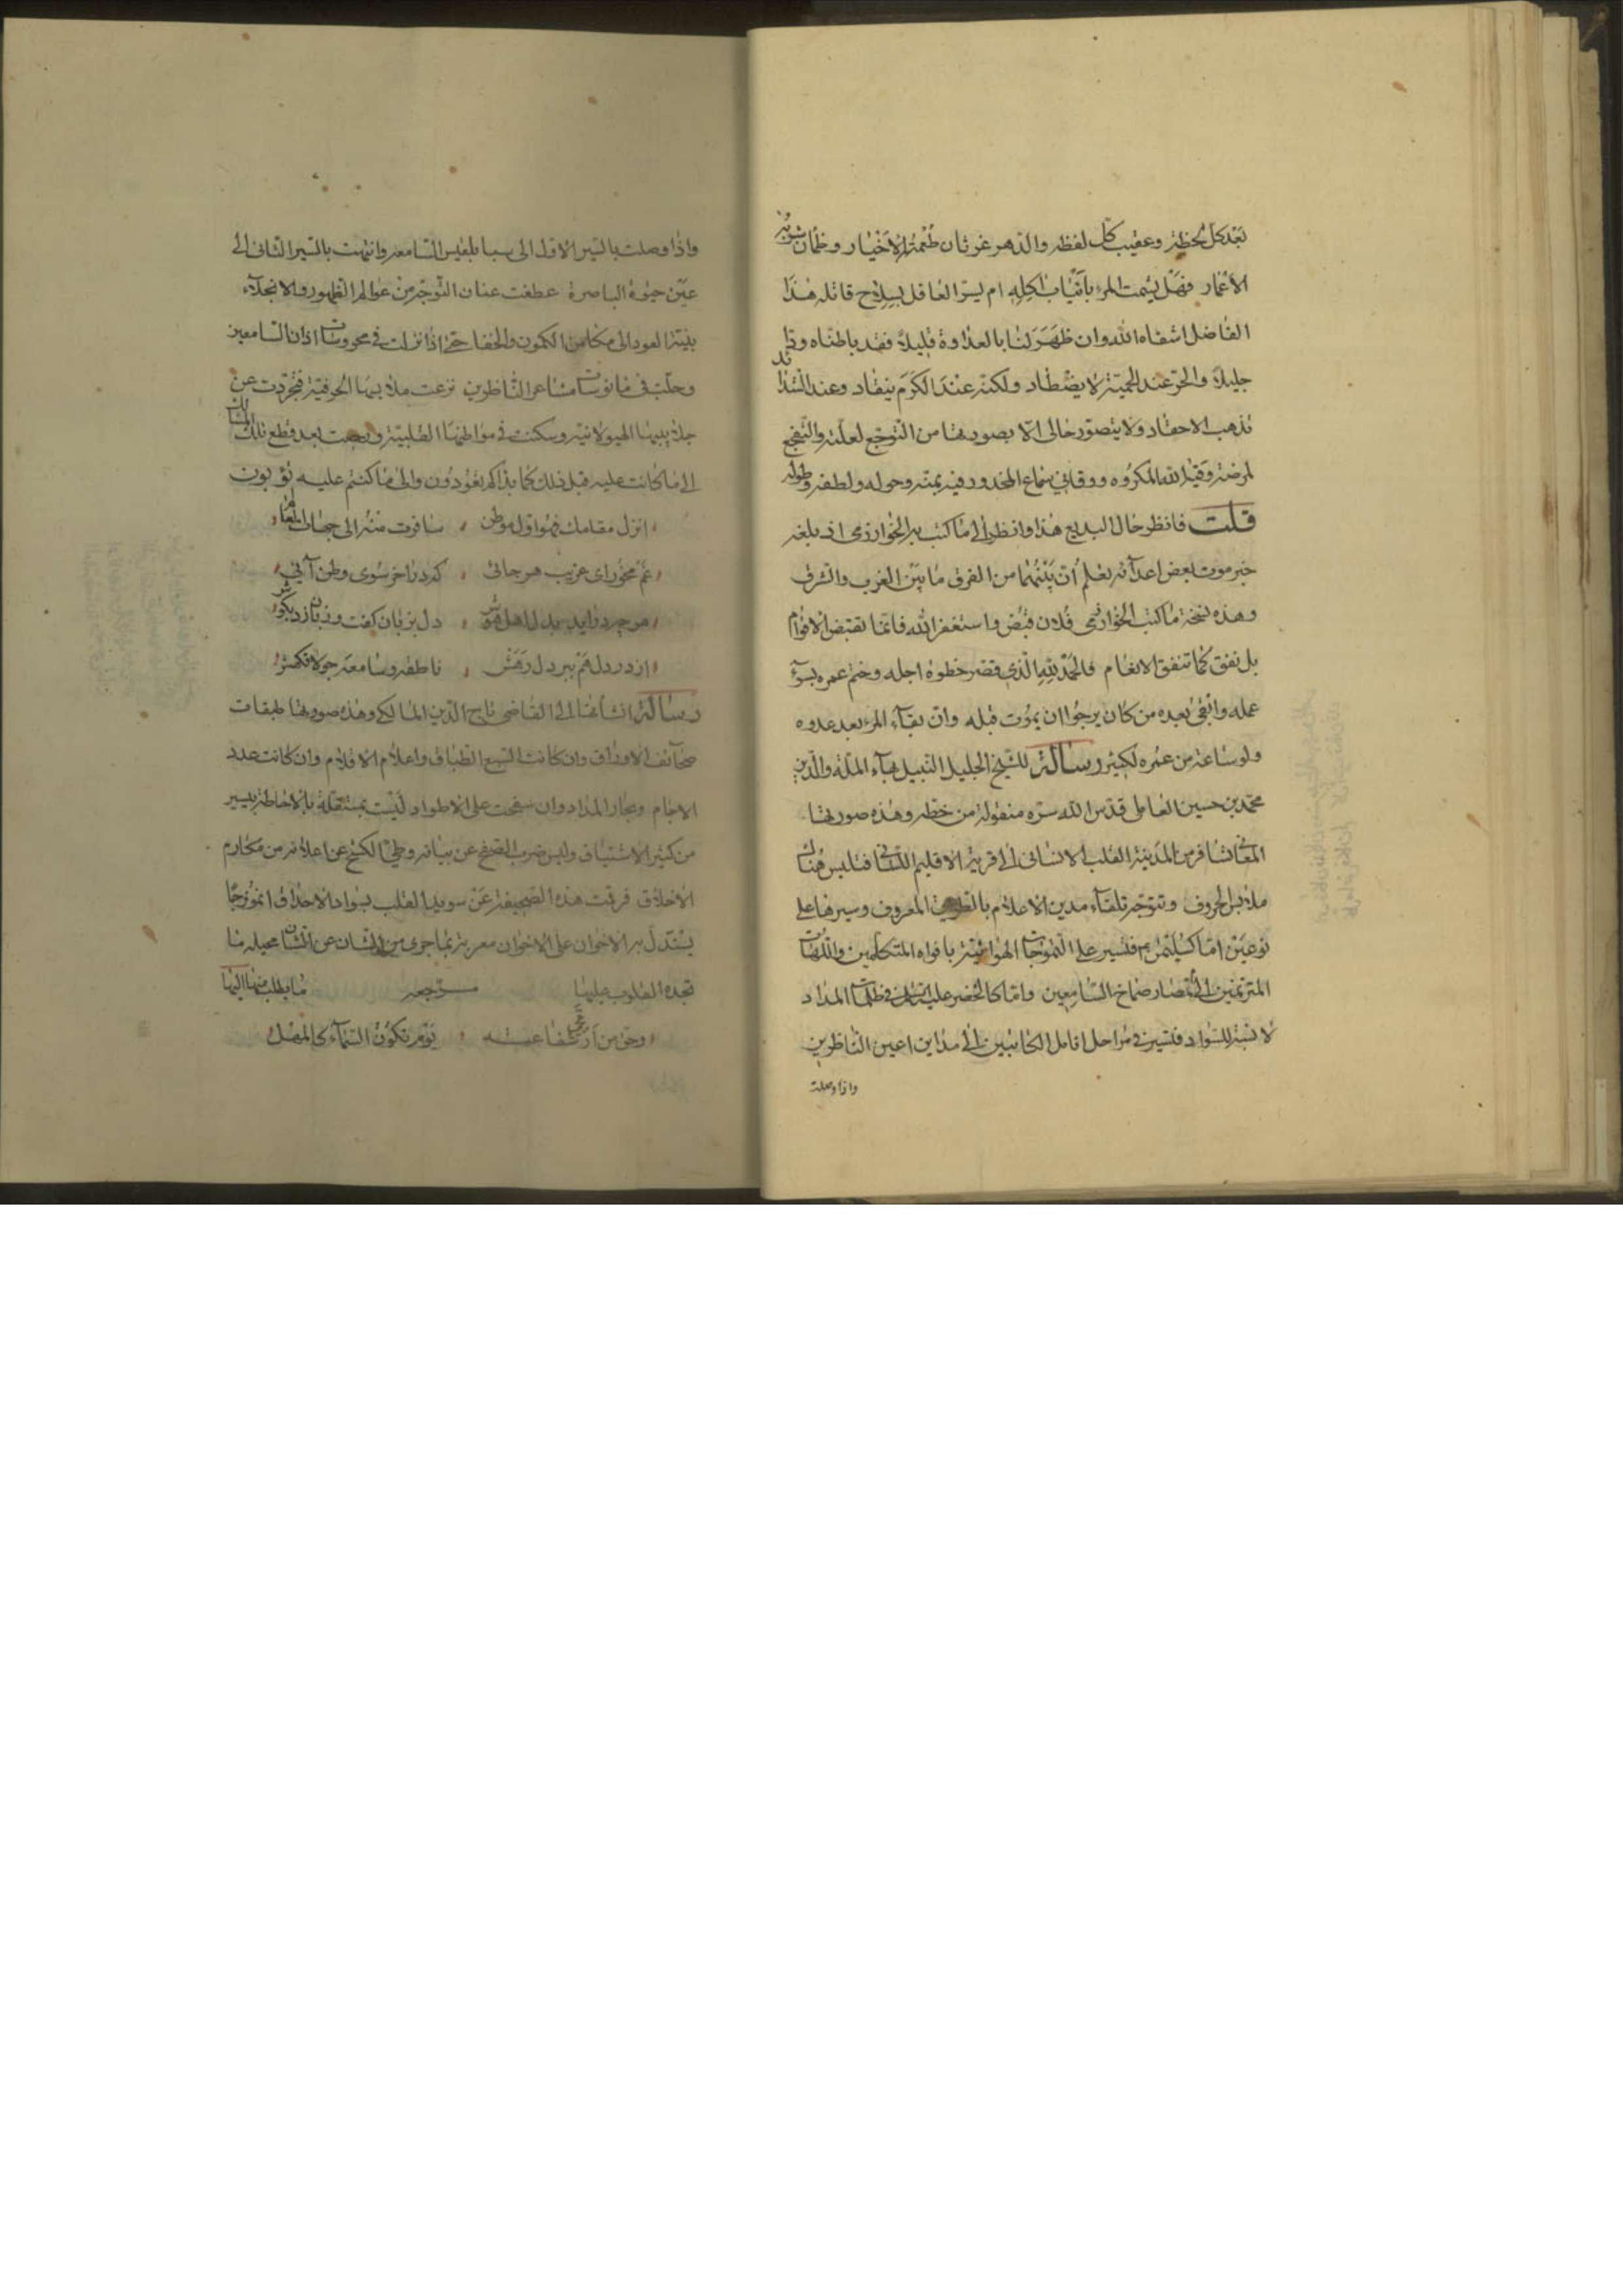 بعد كل لحظة وعقيب كل لفظه والدهر غرثان طعمته الاخيار وظمآن شربه
الاعمار فهل يشمت المرء بانياب اكله ام يسر العاقل بسلاح قاتله هذا
الفاضل اشفاه الله وان ظهر لنا بالعداوة قليلا فقد باطناه ودا
جليلا والحر عند الحمية لا يصطاد ولكنه عند الكرم ينقاد وعند الشدائد
تذهب الاحقاد ولا يتصور حالى الا بصورتها من التوجع لعلته والتفجع
لمرضه وقيه الله المكروه ووقانى سماع المحذور فيه بمنه وحوله ولطفه وطوله
قلت فانظر حال البديع هذا وانظر الى ما كتب به الخوارزمى اذ بلغه
خبر موت بعض اعدآئه تعلم أن بينهما من الفرق ما بين الغرب والشرق
وهذه نسخة ما كتب الخوارزمى فلان قبض واستغفر الله فانما تقبض الاقوام
بل نفق كما تنفق الانعام فالحمد لله الذى قصر خطوه اجله وختم عمره بسوء
عمله وابقى بعده من كان يرجو ان يموت قبله وان بقآء المرء بعد عدوه
ولو ساعة من عمره لكثير رسالة للشيخ الجليل النبيل بهآء الملة والدين
محمد بن حسين العاملى قدس الله سره منقولة من خطه وهذه صورتها
المعانى تسافر من المدينة القلب الانسانى الى قرية الاقليم اللسانى فتلبس هناك
ملابس الحروف وتتوجه تلقآء مدين الاعلام بالطريق المعروف وسيرها على
نوعين اما كسليمن ع فتسير على التموجات الهوائية بافواه المتكلمين واللهات
المترنمين الى امصار صماخ السامعين واما كالخضر عليه السلام فى ظلمات المداد
لابسة للسواد فتسير فى مراحل انامل الكاتبين الى مداين اعين الناظرين
واذا وصلت
واذا وصلت بالسير الاول الى سبا بلقيس السامعة وانتهت بالسير الثانى الى
عين حيوة الباصرة عطفت عنان التوجه من عوالم الظهور والانجلآء
بنية العود الى مكامن الكمون والخفا حتى اذا نزلت فى محروسات اذان السامعين
وحلت فى مانوسات مشاعر الناظرين نزعت ملابسها الحرفية فتجردت عن
جلابيبها الهيولانية وسكنت فى مواطنها القلبية ورجعت بعد قطع تلك المسالك
الى ما كانت عليه قبل ذلك كما بداكم تعودون والى ما كنتم عليه تؤبون
انزل مقامك فهو اول موطن سافرت منه الى جهات العمآء
غم مخور اى غريب هر جائى كه در اخر سوى وطن آئى
هر چه در وايد بدل اهل هوش دل بزبان گفت وزبان زد بگوش
از در دل هم ببر دل رهش ناطقه وسامعه جولانگهش
رسالة انشأتها الى القاضى تاج الدين المالكى وهذه صورتها طبقات
صحآئف الاوراق وان كانت السبع الطباق واعلام الاقلام وان كانت عدد
الاجام وبحار المداد وان سفحت على الاطواد ليست بمستقلة بالاحاطة بيسير
من كثير الاشتياق وليس ضرب الصفح عن بيانه وطى الكشح عن اعلانه من مكارم
الاخلاق فرقت هذه الصحيفة عن سويدا القلب بسواد الاحداق انموذجا
يستدل به الاخوان على الاخوان معربة بما جرى من اللسان عن الشان محيلة ما
تجده القلوب عليها مسترجعه ما يطلب منها اليها
وحق من ارتجى شفاعته يوم تكون السمآء كالمهل